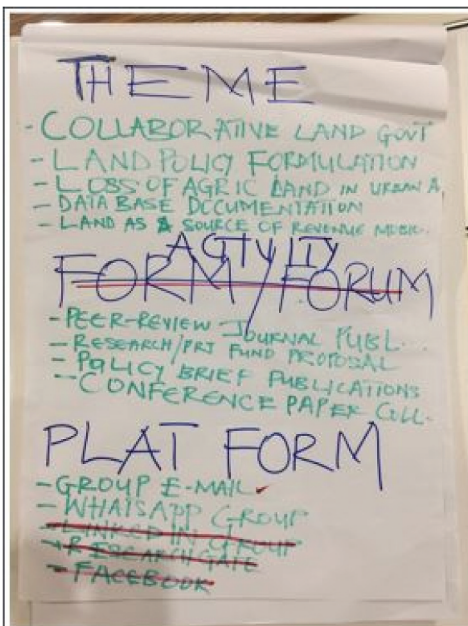 THEME
- COLLABORATIVE LAND GOVT
- LAND POLICY FORMULATION
- LOSS OF AGRIC LAND IN URBAN A
- DATA BASE DOCUMENTATION
- LAND AS A SOURCE OF REVENUE MOBIL.
ACTIVITY
FORM/FORUM
- PEER-REVIEW JOURNAL PUBL...
- RESEARCH/PRJ FUND PROPOSAL
- POLICY BRIEF PUBLICATIONS
- CONFERENCE PAPER COLL.
PLAT FORM
- GROUP E-MAIL
- WHATSAPP GROUP
- LINKED IN GROUP
- RESEARCHGATE
- FACEBOOK